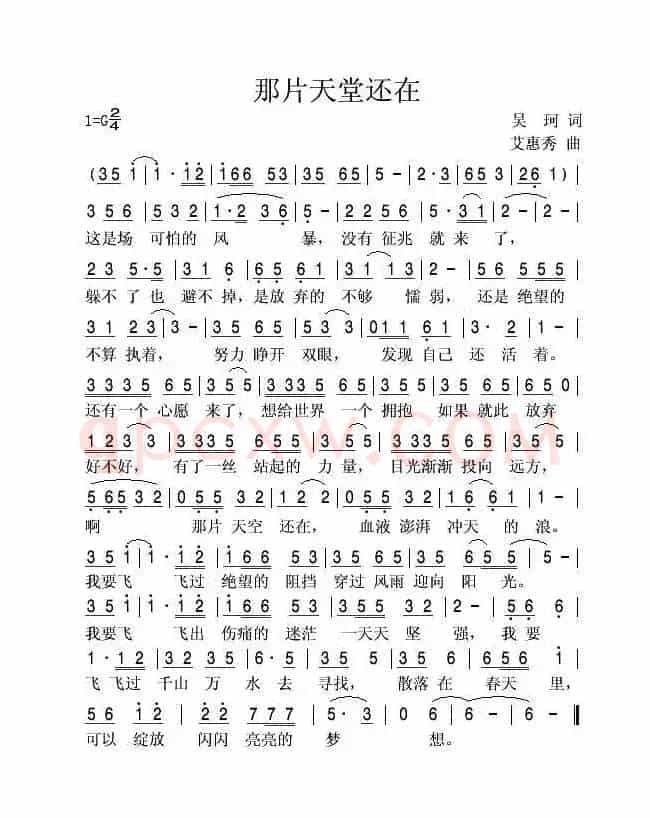 那片天堂还在
1=G 2/4
吴 珂 词
艾惠秀 曲
(3 5 1 | 1· 1 2 | 1 6 6 5 3 5 | 3 5 6 5 | 5 - | 2· 3 | 6 5 6 3 | 2 6 1) |
3 5 6 | 5 3 2 | 1· 2 3 6 | 5 - | 2 2 5 6 | 5· 3 1 | 2 - | 2 - |
这是场 可怕的 风 暴, 没有 征兆 就 来 了,
2 3 5· 5 | 3 1 6 | 6 5 6 5 | 3 1 1 3 | 2 - | 5 6 5 5 5 |
躲不 了也 避不 掉, 是放 弃的 不够 懦 弱, 还是 绝望的
3 1 2 3 | 3 - | 3 5 6 5 | 3 5 3 | 0 1 1 6 1 | 3· 2 | 2 - |
不算 执着, 努力 睁开 双眼, 发现 自己 还 活 着。
3 3 3 5 6 5 | 3 5 3 | 3 3 3 5 6 5 | 3 3 5 | 3 3 3 5 | 6 5 0 |
还有一个 心愿 来了, 想给世界 一个 拥抱 如果 就此 放弃
1 2 3 3 | 3 3 3 5 | 6 5 5 6 | 5 3 | 3 3 5 6 | 6 5 6 | 5 - |
好不好, 有了一丝 站起的 力 量, 目光渐渐 投向 远方,
5 6 5 3 2 | 0 5 5 3 2 | 1 2 2 | 0 5 5 3 2 | 1 6 6 1 | 1 - |
啊 那片 天空 还在, 血液 澎湃 冲天 的 浪。
3 5 1 | 1· 1 2 | 1 6 6 5 | 3 5 3 | 3 5 6 3 | 6 5 5 | 5 - |
我要飞 飞过 绝望的 阻挡 穿过 风雨 迎向 阳 光。
我要飞 飞出 伤痛的 迷茫 一天天 坚 强, 我 要
飞 飞过 千山 万 水 去 寻找, 散落 在 春天 里,
5 6 1 2 | 2 2 7 7 7 | 5· 3 | 0 6 | 6 - | 6 - ‖
可以 绽放 闪闪 亮亮的 梦 想。
qpcxw.com